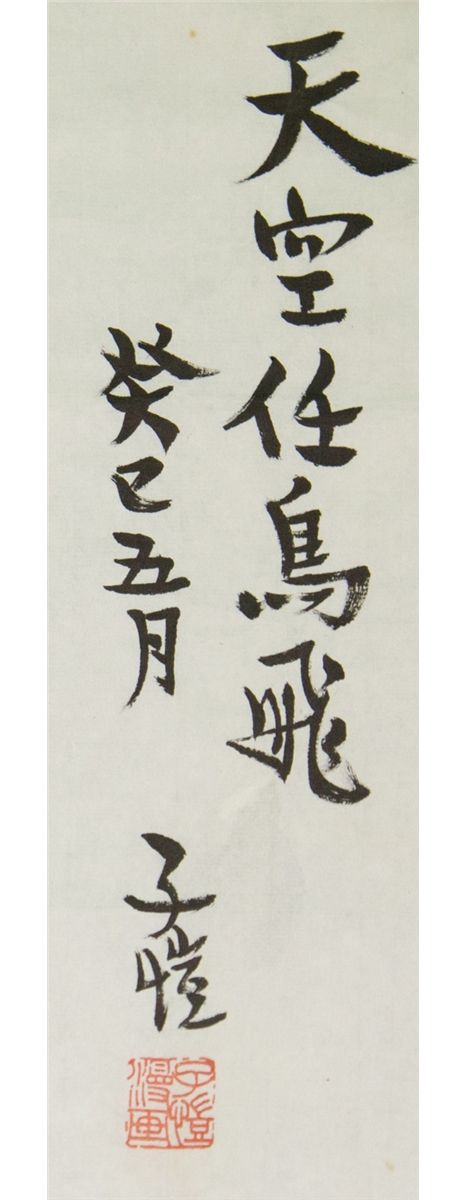 天空任鳥飛
癸巳五月 子愷
子愷漫画